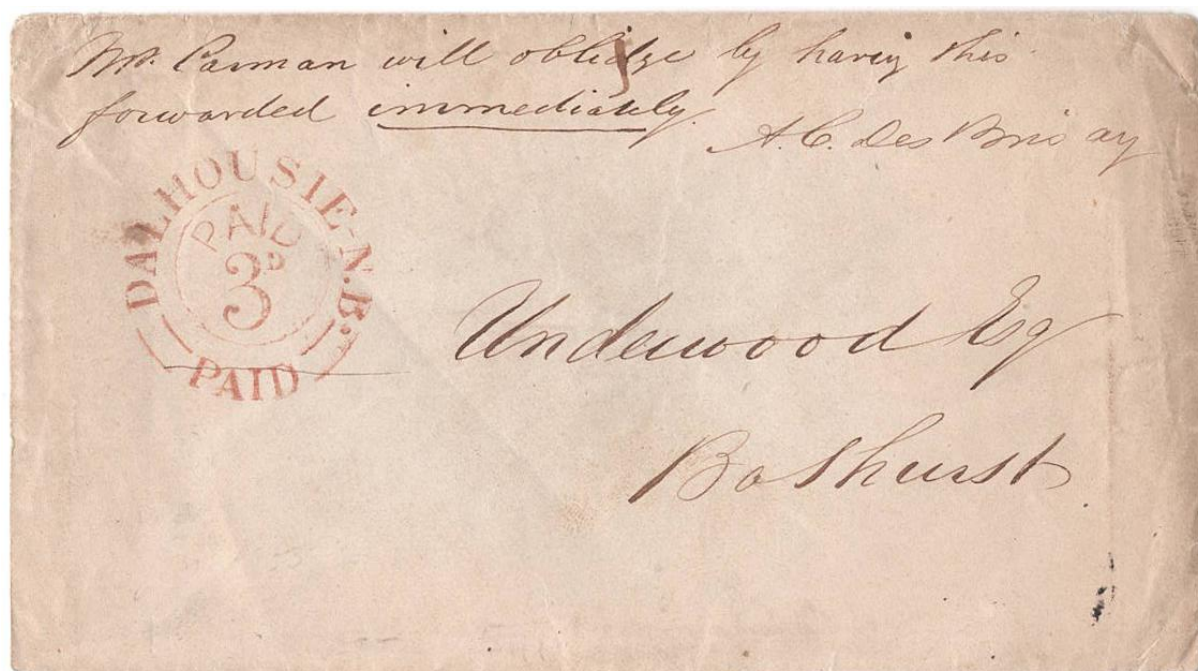 Mr. Carman will oblidge by having this
forwarded immediately.
A. C. Des Brisay
DALHOUSIE N.B.
PAID
3D
PAID
Underwood Esq
Bathurst